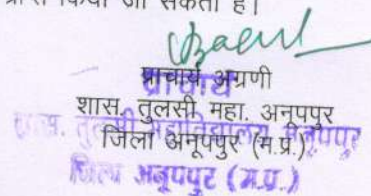 प्राप्त किया जा सकता है।
प्राचार्य अग्रणी
शास. तुलसी महा. अनूपपुर
जिला अनूपपुर (म.प्र.)
प्राचार्य
शास. तुलसी महाविद्यालय अनूपपुर
जिला अनूपपुर (म.प्र.)